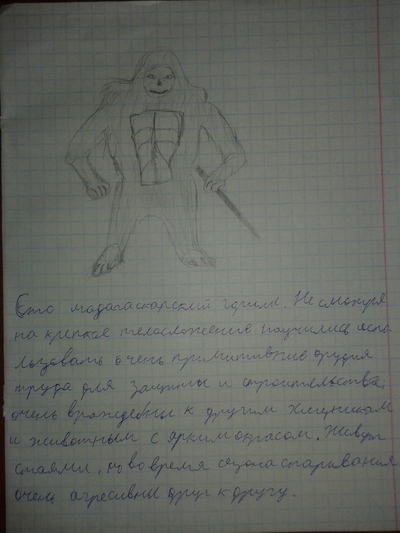 Ето мадагаскарский горил. Не смотря
на крепкое телосложение научились испо-
льзовать очень примитивние орудия
труда для защиты и строительства,
очень враждебны к другим хищникам
и животным с ярким окрасом. Живут
стаями, но во время сезона спаривания
очень агресивны друг к другу.